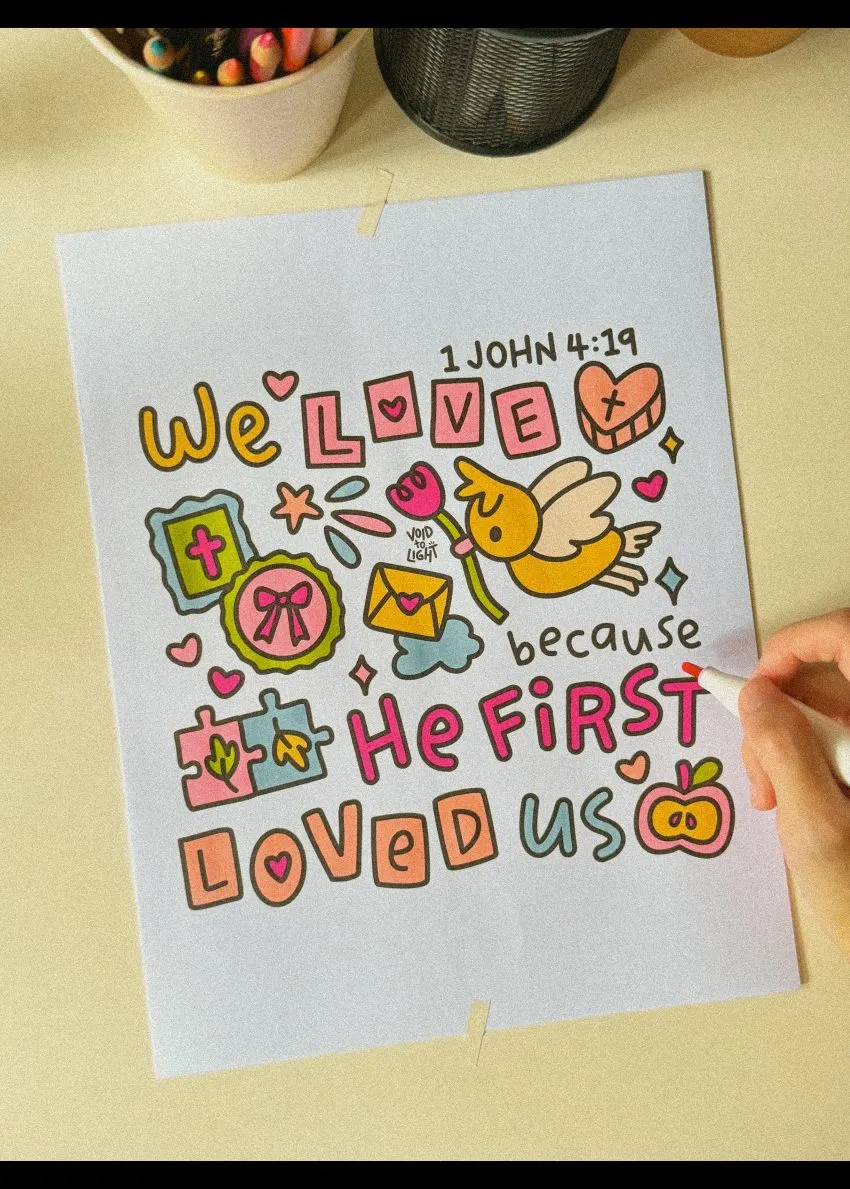 1 JOHN 4:19
We LOVE
VOID
to
LIGHT
because
He FiRST
LOVeD us